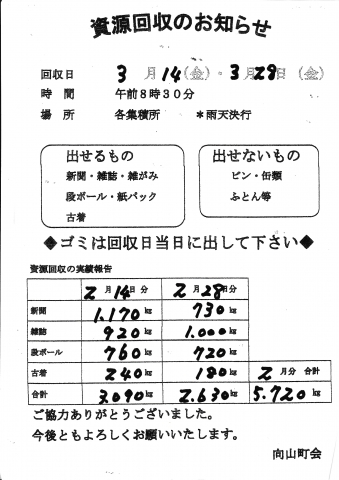 資源回収のお知らせ
回収日 3月14(金)・3月28日(金)
時 間 午前8時30分
場 所 各集積所 *雨天決行
出せるもの
新聞・雑誌・雑がみ
段ボール・紙パック
古着
出せないもの
ビン・缶類
ふとん等
◆ゴミは回収日当日に出して下さい◆
資源回収の実績報告
2月14日分 2月28日分
新聞 1.170kg 730kg
雑誌 920kg 1.000kg
段ボール 760kg 720kg
古着 240kg 180kg 2月分 合計
合計 3.090kg 2.630kg 5.720kg
ご協力ありがとうございました。
今後ともよろしくお願いいたします。
向山町会